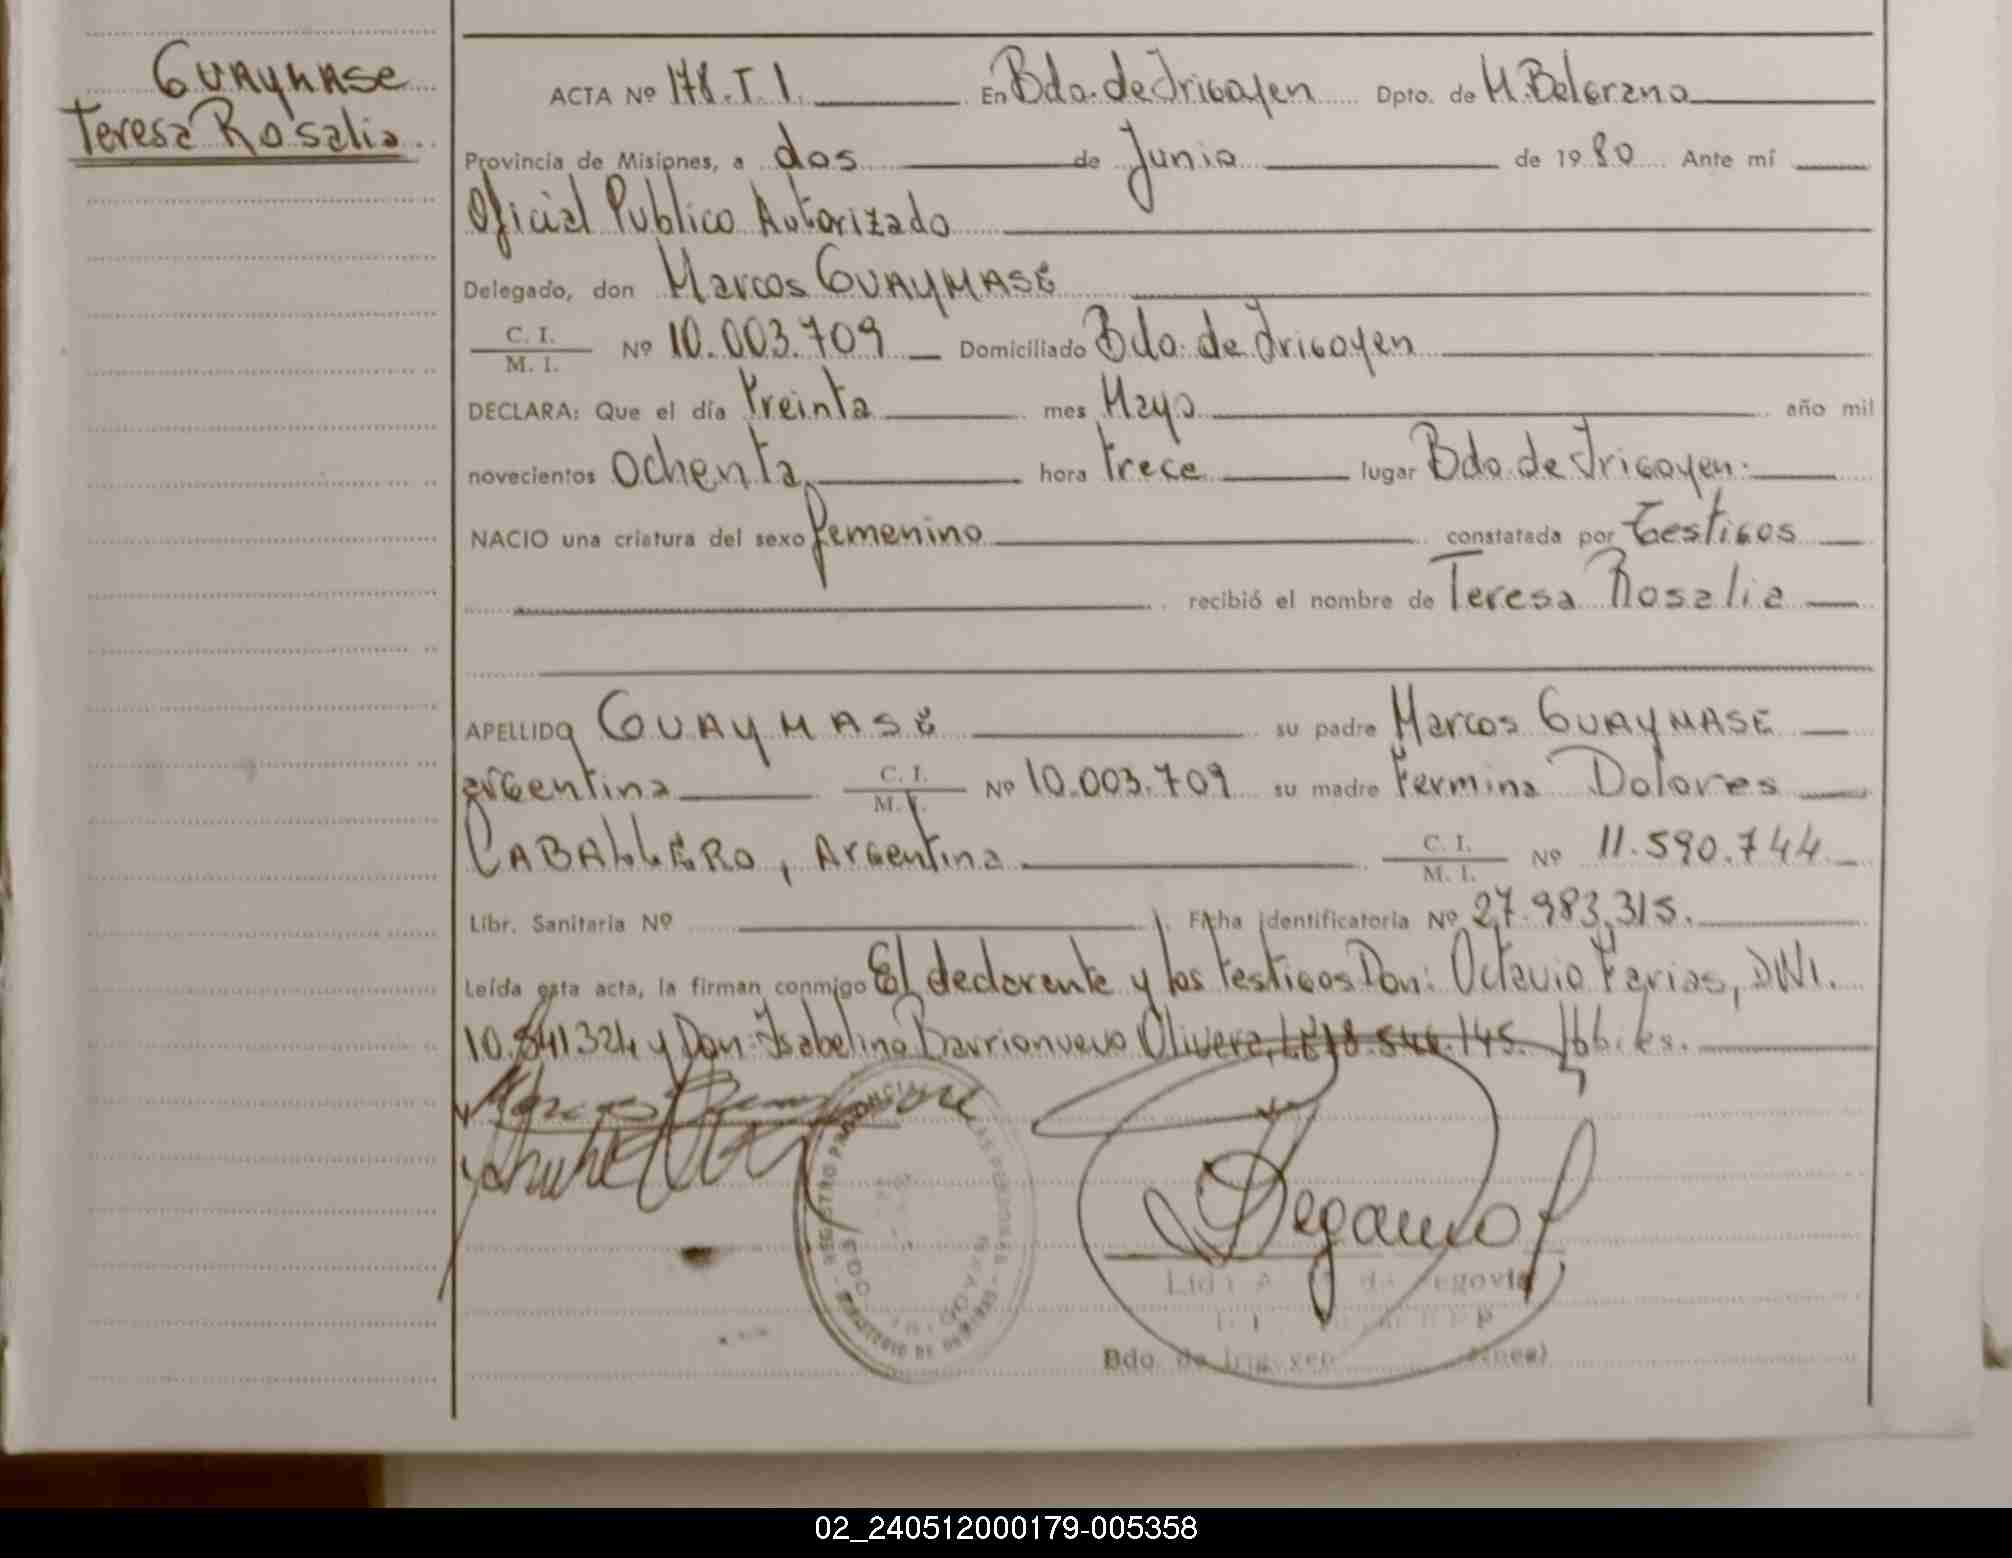 GUAYMASE
Teresa Rosalia
ACTA Nº 178.T.I. En Bdo. de Irigoyen Dpto. de M. Belgrano
Provincia de Misiones, a dos de Junio de 1980 Ante mí
Oficial Publico Autorizado
Delegado, don Marcos GUAYMASE
C. I.
M. I.
Nº 10.003.709 Domiciliado Bdo. de Irigoyen
DECLARA: Que el día treinta mes Mayo año mil
novecientos Ochenta hora trece lugar Bdo. de Irigoyen.
NACIO una criatura del sexo femenino constatada por Testigos
recibió el nombre de Teresa Rosalia
APELLIDO GUAYMASE su padre Marcos GUAYMASE
argentina C. I. M. I. Nº 10.003.709 su madre Fermina Dolores
CABALLERO, Argentina C. I. M. I. Nº 11.590.744
Libr. Sanitaria Nº Ficha identificatoria Nº 27.983.315.
Leída esta acta, la firman conmigo El declarante y los testigos Don: Octavio Farias, DNI.
10.841324 y Don: Isabelino Barrionuevo Olivera,
REGISTRO PROVINCIAL DE LAS PERSONAS
de Segovia
Bdo. de Irigoyen
02_240512000179-005358